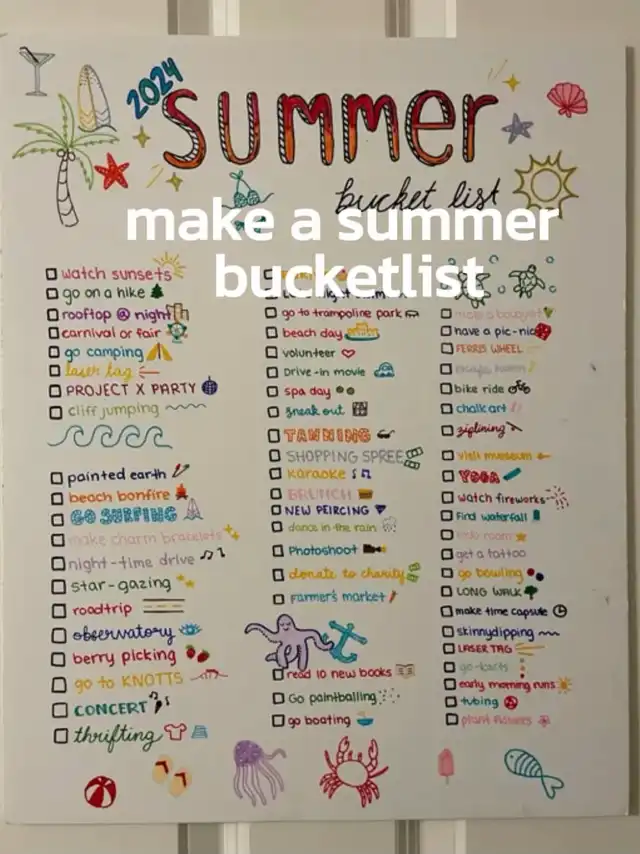 2024
SUMMER
bucket list
make a summer
bucketlist
watch sunsets
go on a hike
rooftop @ night
carnival or fair
go camping
laser tag
PROJECT X PARTY
cliff jumping
painted earth
beach bonfire
GO SURFING
make charm bracelets
night-time drive
star-gazing
roadtrip
observatory
berry picking
go to KNOTTS
CONCERT
thrifting
go to trampoline park
beach day
volunteer
Drive-in movie
spa day
sneak out
TANNING
SHOPPING SPREE
karaoke
BRUNCH
NEW PEIRCING
dance in the rain
Photoshoot
donate to charity
farmer's market
read 10 new books
Go paintballing
go boating
make a bouquet
have a pic-nic
FERRIS WHEEL
bike ride
chalk art
ziplining
visit museum
YOGA
watch fireworks
find waterfall
get a tattoo
go bowling
LONG WALK
make time capsule
skinnydipping
LASER TAG
go-karts
early morning runs
tubing
plant flowers